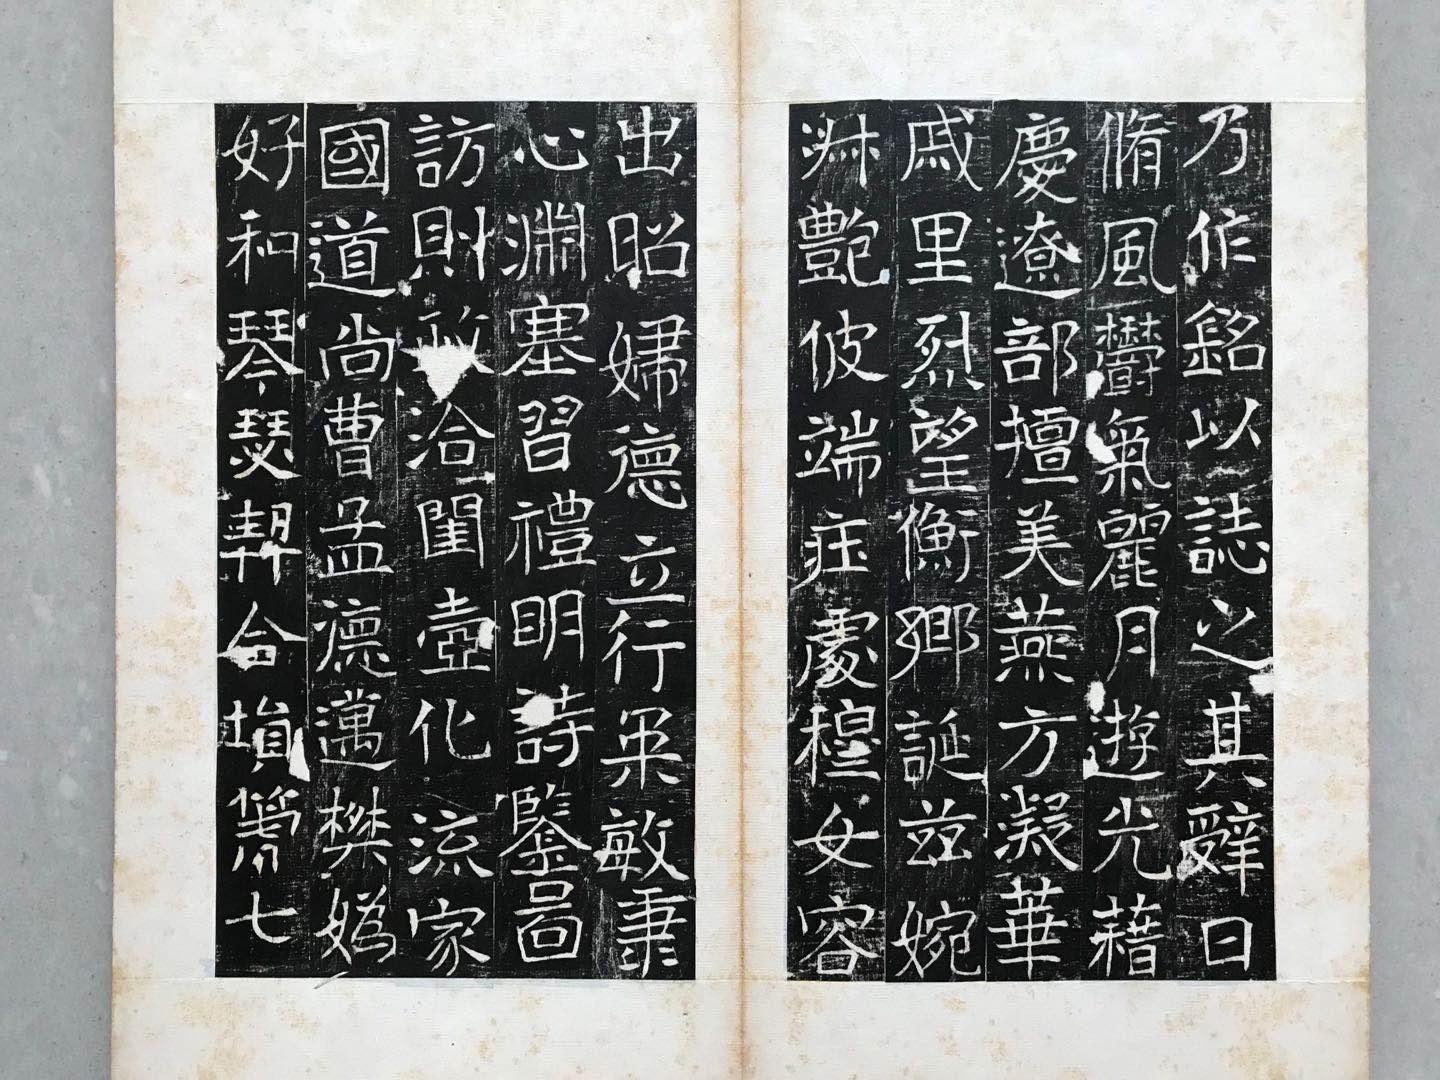 乃作銘以誌之其辭曰
脩風欝氣麗月遊光藉
慶遼部擅美燕方凝華
戚里烈望衡鄉誕茲婉
淑艷彼端庄處穆女容
出昭婦德立行罙敏秉
心淵塞習禮明詩鑒啚
訪則洽閨壼化流家
國道尚曹孟德邁樊嬀
好和琴瑟契合塤篪七